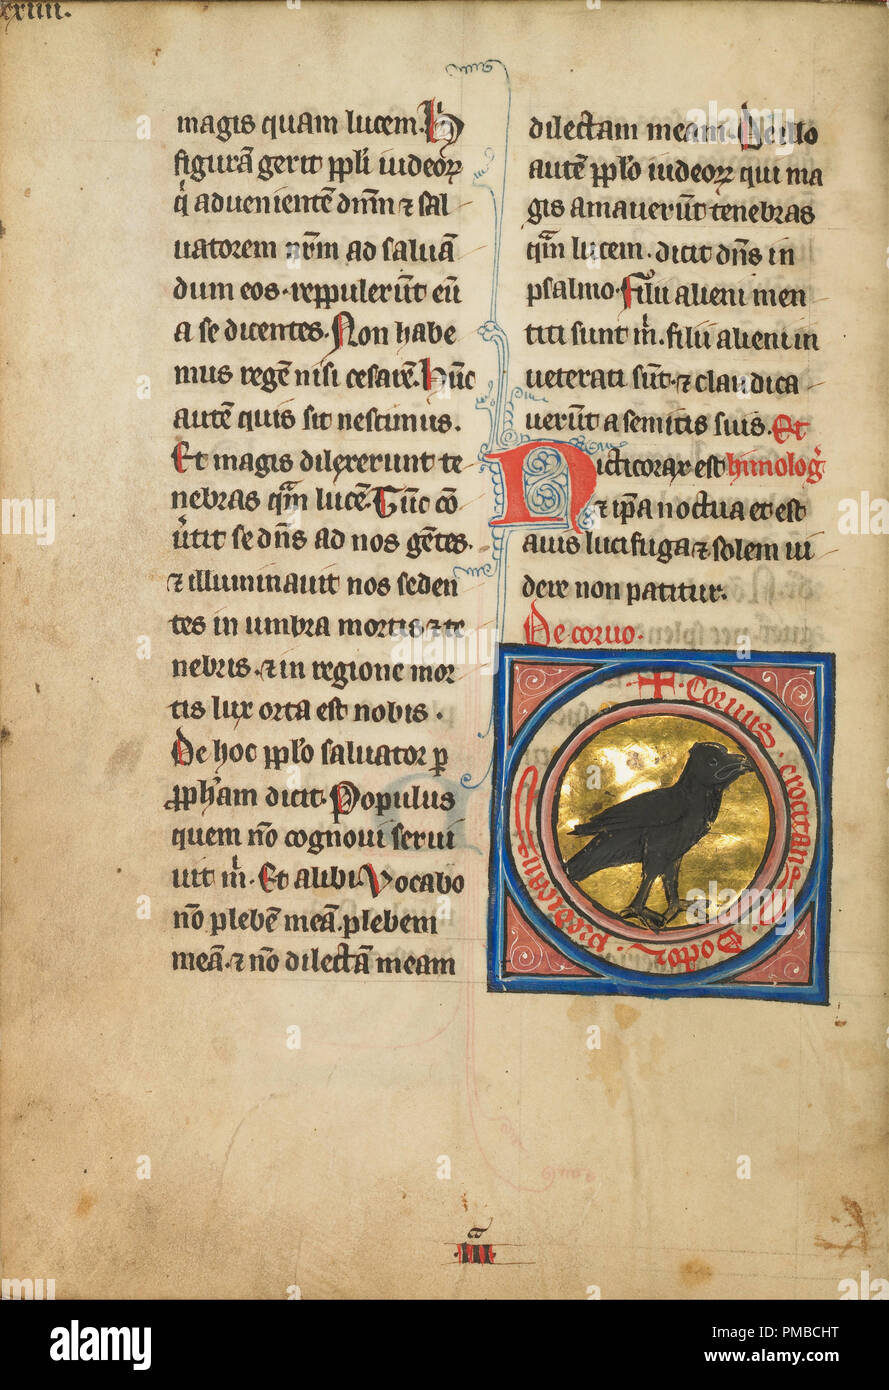 xxiiii.
magis quam lucem. H̄
figurā gerit ppl̄i iudeoꝝ
q̇ aduenientē dn̄m ⁊ sal
uatorem nr̄m ad saluā
dum eos. reppulerūt eū
a se dicentes. Non habe
mus regē nisi cesarē. Hūc
autē quis sit nescimus.
Et magis dilexerunt te
nebras qm̄ lucē. Tūc cō
uertit se dn̄s ad nos gētes.
⁊ illuminauit nos seden
tes in umbra mortis ⁊ te
nebris. ⁊ in regione mor
tis lux orta est nobis.
De hoc pplo saluator ꝑ
ꝓph̄am dicit. Populus
quem nō cognoui serui
uit m̄. Et alibi. Vocabo
nō plebē meā. plebem
meā. ⁊ nō dilectā meam
dilectam meam. De illo
autē pplo iudeoꝝ qui ma
gis amauerūt tenebras
qm̄ lucem. dicit dn̄s in
psalmo. Filii alieni men
titi sunt m̄. filii alieni in
ueterati sūt. ⁊ claudica
uerūt a semitis suis. Et
Nicticorax est himoloḡ
⁊ ip̄a noctua et est
auis lucifuga ⁊ solem ui
dere non patitur.
De coruo.
✚ · Coruus · crocitans · Doctor · predicans
a
III
alamy
Image ID: PMBCHT
www.alamy.com